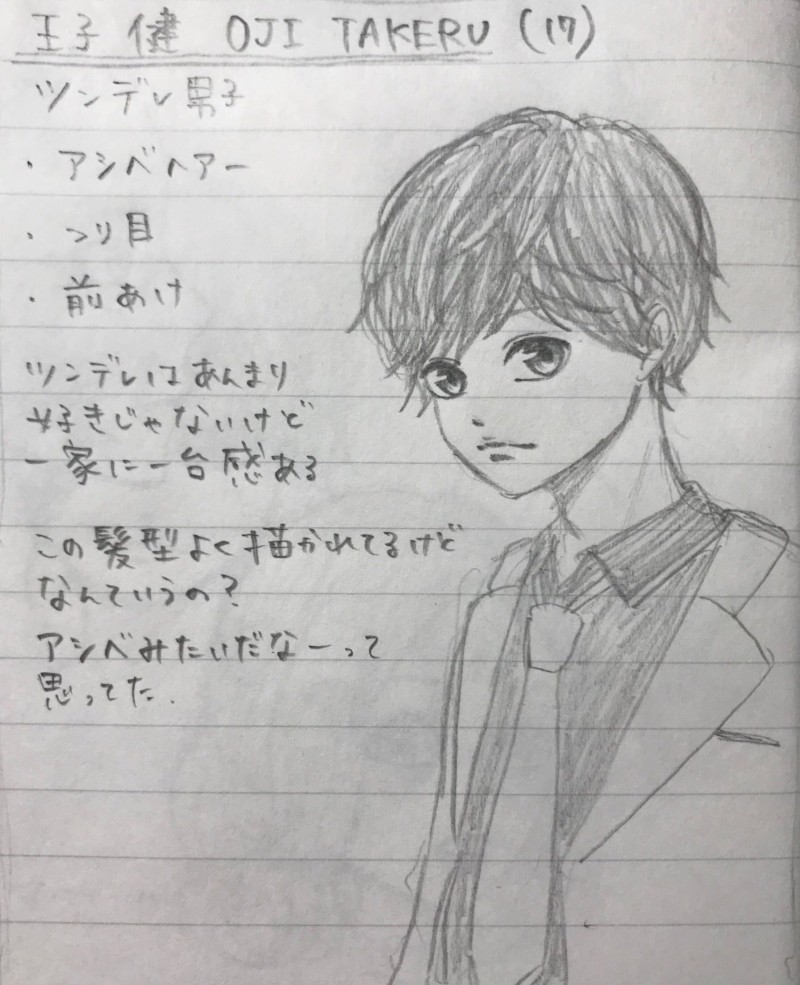 王子 健 OJI TAKERU (17)
ツンデレ男子
・アシベヘアー
・つり目
・前あけ
ツンデレはあんまり
好きじゃないけど
一家に一台感ある
この髪型よく描かれてるけど
なんていうの?
アシベみたいだなーって
思ってた.